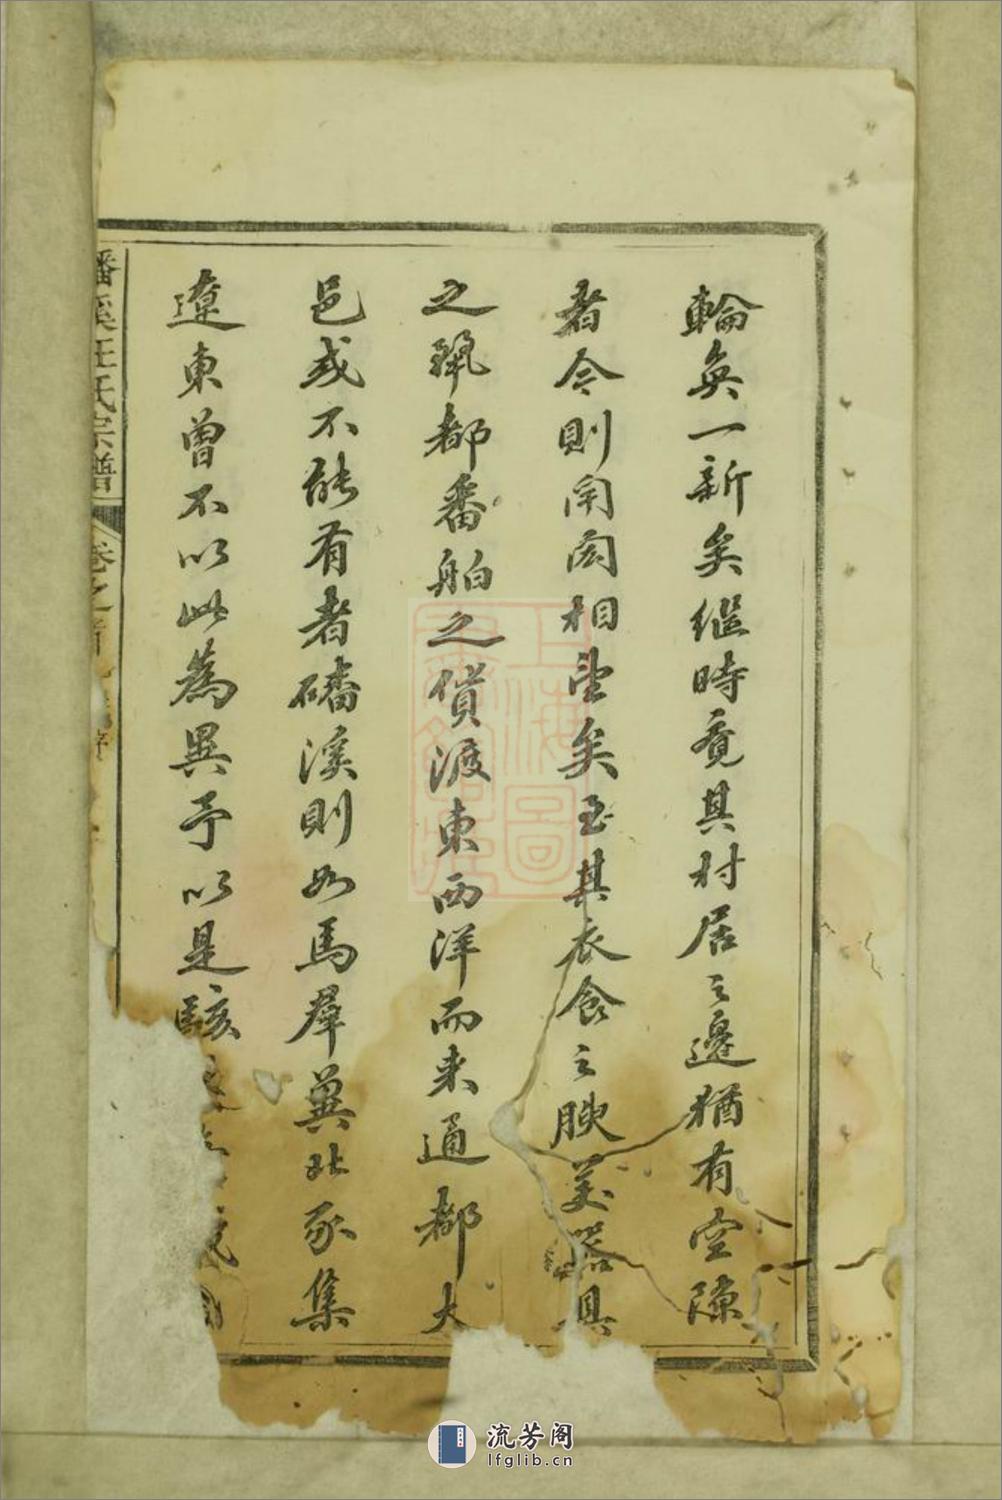 輪奐一新矣繼時竟其村居之邊猶有空隙
者今則閈閎相望矣至其衣食之腴美器具
之瓌都番舶之貨渡東西洋而来通都大
邑或不能有者磻溪則如馬群冀北豕集
遼東曾不以此為異予以是駭
磻溪汪氏宗譜 卷之首
上海圖
流芳阁
lfglib.cn